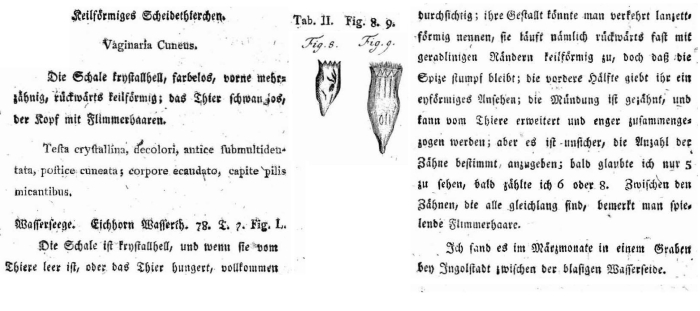 Keilförmiges Scheidethierchen.
Vaginaria Cuneus.
Die Schale krystallhell, farbelos, vorne mehr-
zähnig, rückwärts keilförmig; das Thier schwanzlos,
der Kopf mit Flimmerhaaren.
Testa crystallina, decolori, antice submultiden-
tata, postice cuneata; corpore ecaudato, capite pilis
micantibus.
Wasserseege. Eichhorn Wasserth. 78. T. 7. Fig. L.
Die Schale ist krystallhell, und wenn sie vom
Thiere leer ist, oder das Thier hungert, vollkommen
Tab. II. Fig. 8. 9.
Fig. 8. Fig. 9.
durchsichtig; ihre Gestalt könnte man verkehrt lanzett-
förmig nennen, sie läuft nämlich rückwärts fast mit
geradlinigen Rändern keilförmig zu, doch daß die
Spize stumpf bleibt; die vordere Hälfte giebt ihr ein
eyförmiges Ansehen; die Mündung ist gezähnt, und
kann vom Thiere erweitert und enger zusammenge-
zogen werden; aber es ist unsicher, die Anzahl der
Zähne bestimmt anzugeben; bald glaubte ich nur 5
zu sehen, bald zählte ich 6 oder 8. Zwischen den
Zähnen, die alle gleichlang sind, bemerkt man spie-
lende Flimmerhaare.
Ich fand es im Märzmonate in einem Graben
bey Ingolstadt zwischen der blasigen Wasserseide.